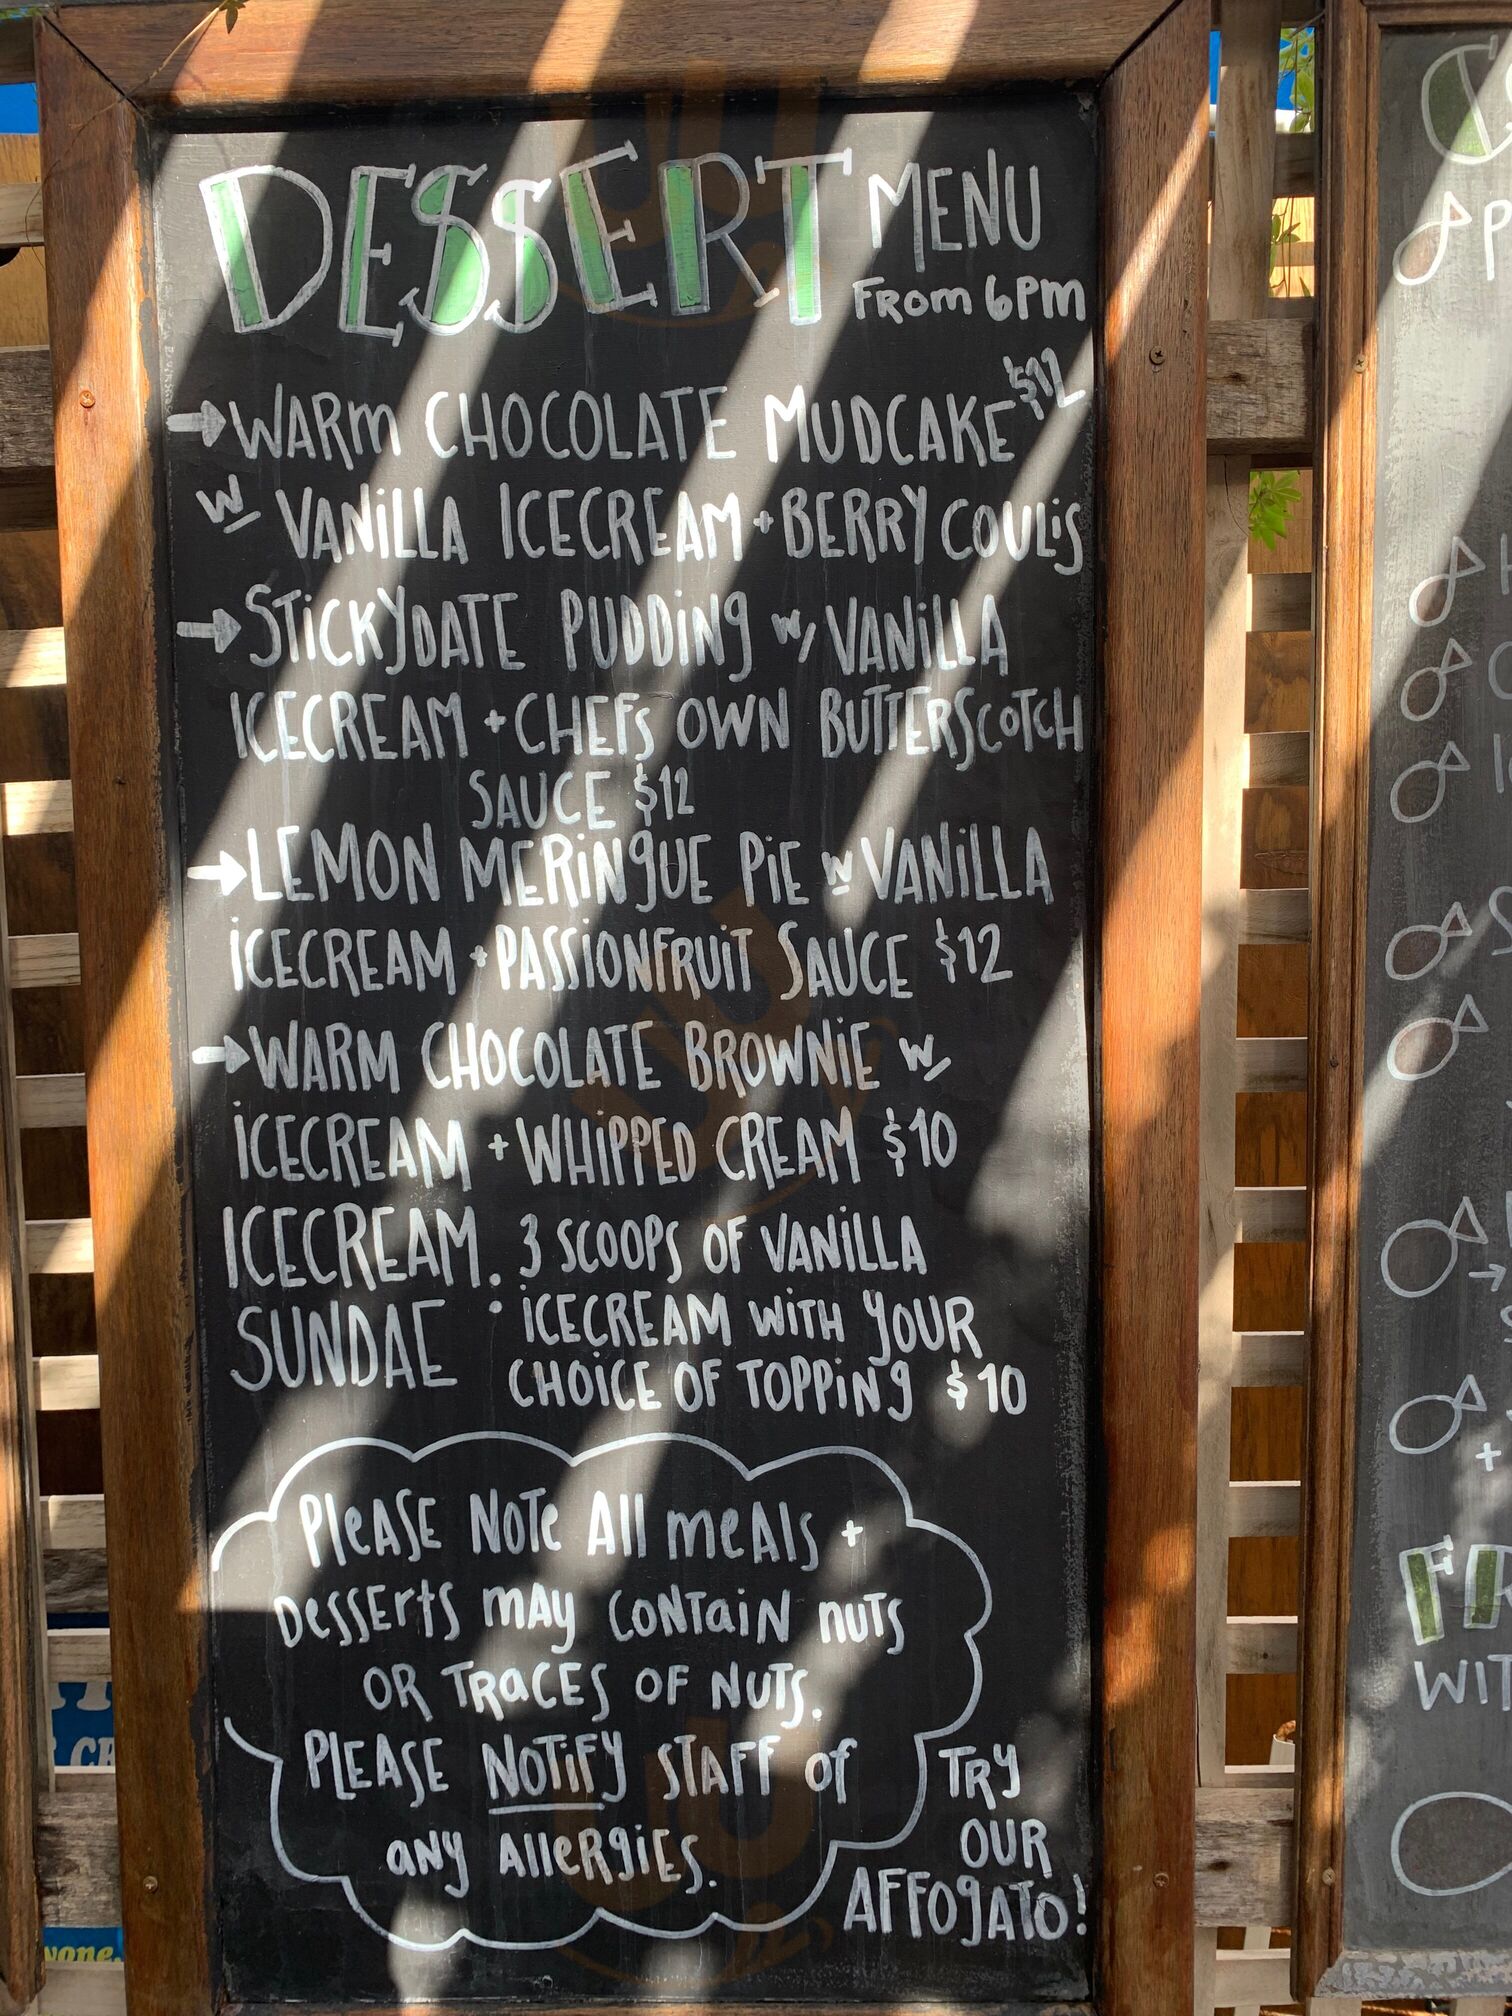 DESSERT MENU
FROM 6PM
WARM CHOCOLATE MUDCAKE $12
W/ VANILLA ICECREAM + BERRY COULIS
STICKYDATE PUDDING W/ VANILLA
ICECREAM + CHEFS OWN BUTTERSCOTCH
SAUCE $12
LEMON MERINGUE PIE W VANILLA
ICECREAM + PASSIONFRUIT SAUCE $12
WARM CHOCOLATE BROWNIE W/
ICECREAM + WHIPPED CREAM $10
ICECREAM SUNDAE : 3 SCOOPS OF VANILLA
ICECREAM WITH YOUR
CHOICE OF TOPPING $10
PLEASE NOTE ALL MEALS +
DESSERTS MAY CONTAIN NUTS
OR TRACES OF NUTS.
PLEASE NOTIFY STAFF OF
ANY ALLERGIES.
TRY
OUR
AFFOGATO!